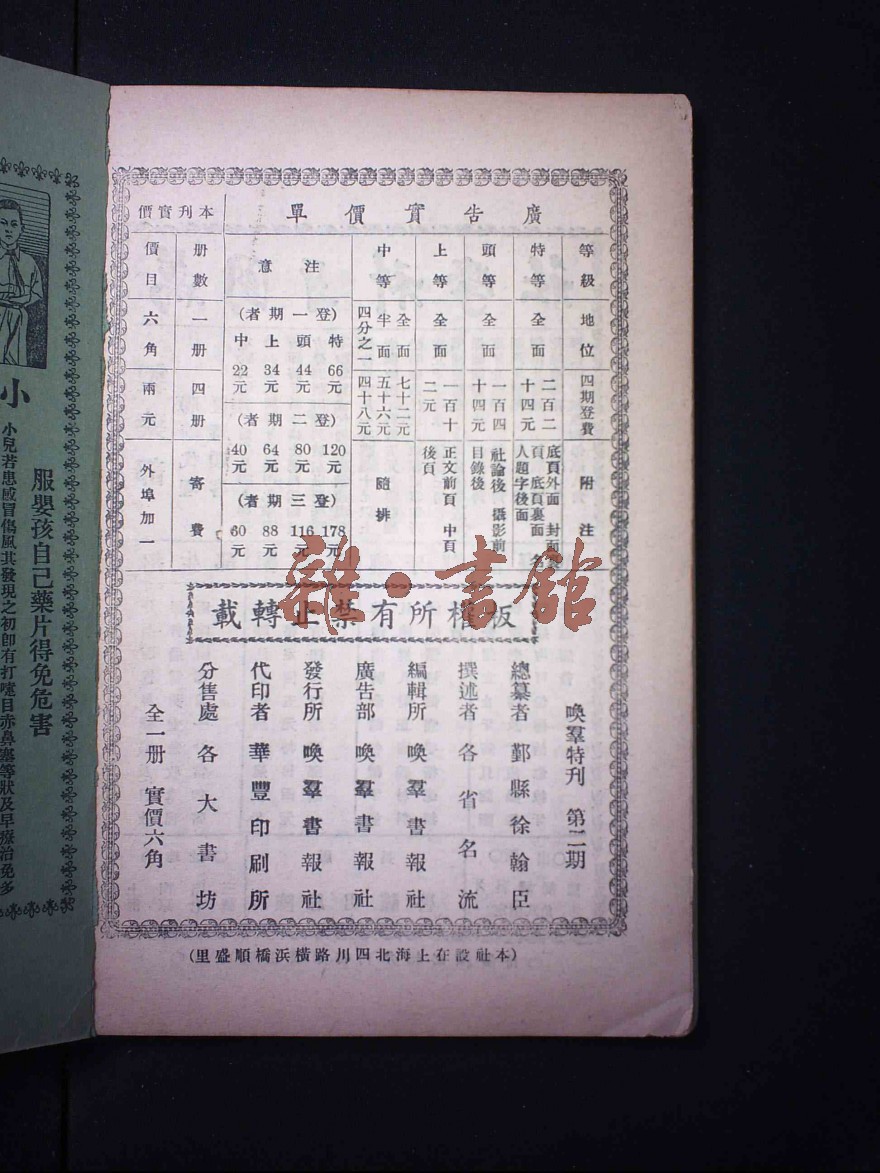 廣告實價單
等級 地位 四期登費 附注
特等 全面 二百二十四元 底頁外面 封面裏頁 底頁裏面 名人題字後面
頭等 全面 一百四十四元 社論後 攝影前 目錄後
上等 全面 一百十二元 正文前頁 中頁後頁
中等 全面 七十二元 隨排
半面 五十六元
四分之一 四十八元
注意
(登一期者)
特 頭 上 中
66元 44元 34元 22元
(登二期者)
120元 80元 64元 40元
(登三期者)
178元 116元 88元 60元
本刊實價
册數 一册 四册 寄費
價目 六角 兩元 外埠加一
板權所有禁止轉載
喚羣特刊 第二期
總纂者 鄞縣徐翰臣
撰述者 各省名流
編輯所 喚羣書報社
廣告部 喚羣書報社
發行所 喚羣書報社
代印者 華豐印刷所
分售處 各大書坊
全一册 實價六角
(本社設在上海北四川路橫浜橋順盛里)
雜·書館
服嬰孩自己藥片得免危害
小兒若患感冒傷風其發現之初卽有打嚏目赤鼻塞等狀及早療治免多
小